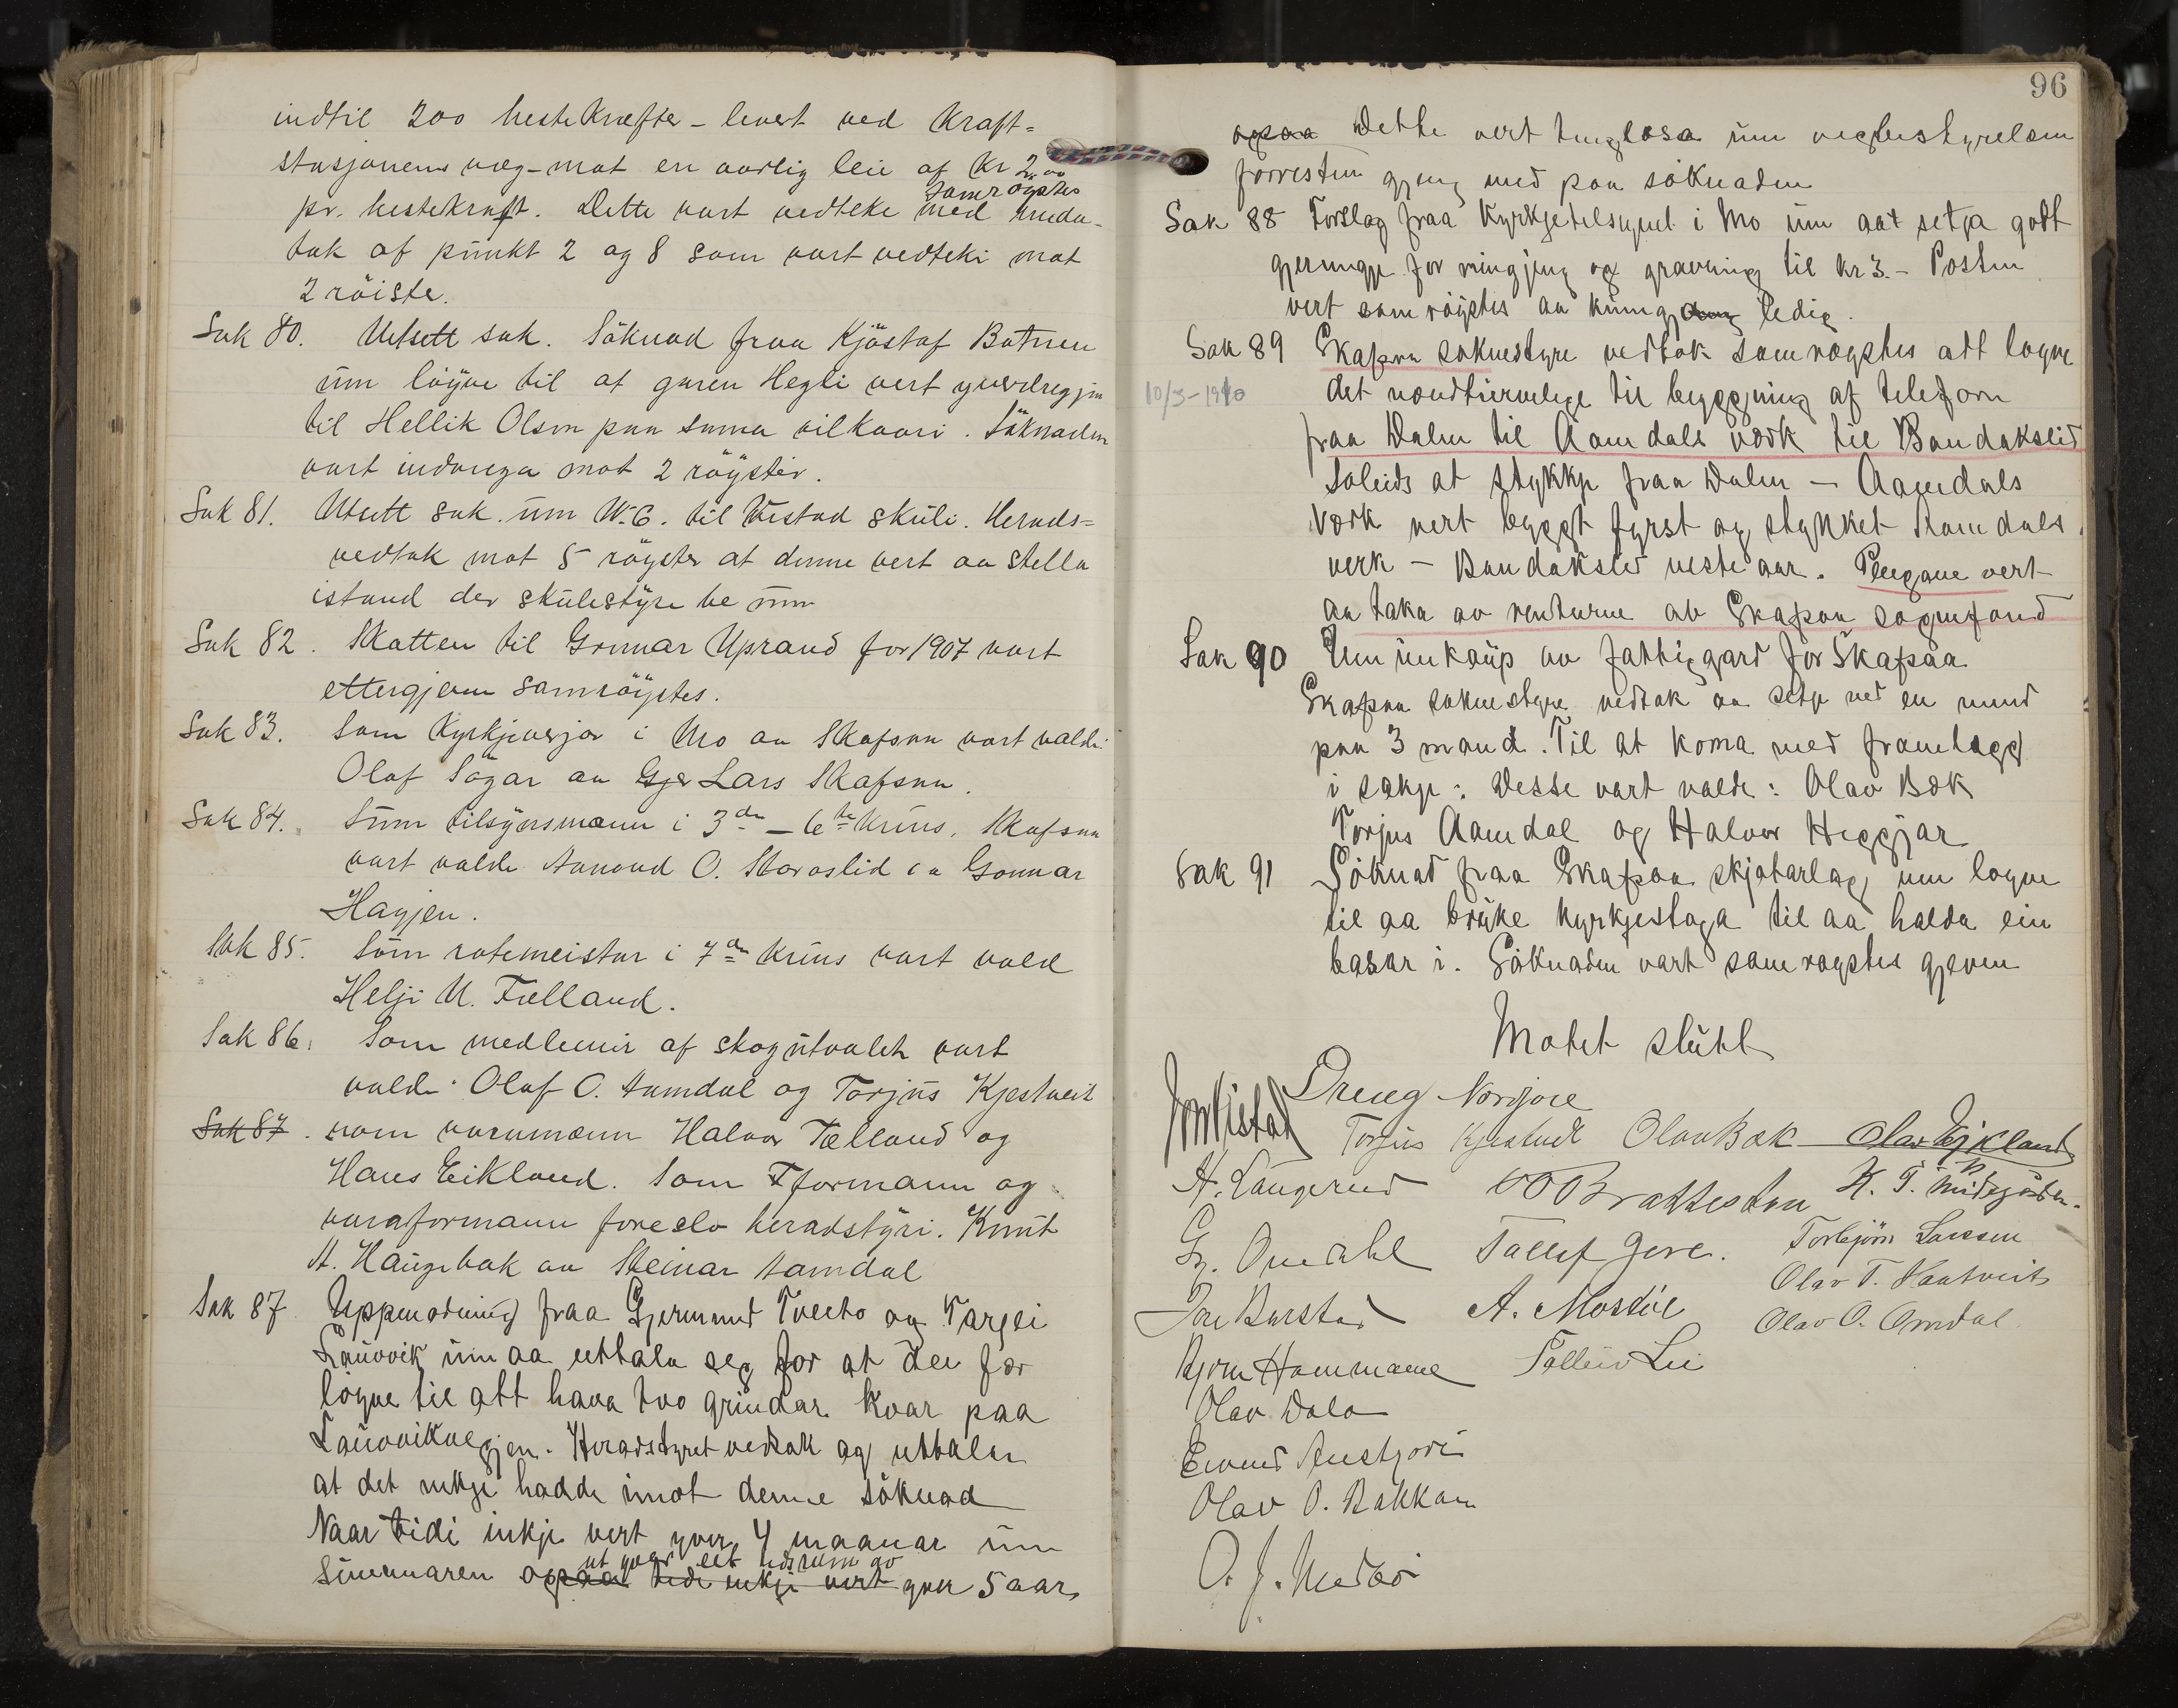 indtil 200 hestekræfter - levert ved Kraft=
stasjonens væg - mot en aarlig leie af Kr 2,00
samrøystes
pr. hestekraft. Dette vart vedteke med unda-
tak af punkt 2 og 8 som vart vedteki mot
2 röiste.
Sak 80. Utsett sak. Söknad fraa Kjöstaf Botnen
um löyve til at garen Hegli vert yverdregjin
til Hellik Olson paa sama vilkaari. Söknaden
vart indvega mot 2 röyster.
Sak 81. Utsett sak um W.C. til Vistad skule. Herads=
vedtak mot 5 röyster at denne vert aa stella
istand der skulestyre be um
Sak 82. Skatten til Gonnar Uprand for 1907 vart
ettergjeven samröystes.
Sak 83. Som Kyrkjeverjar i Mo aa Skafsaa vart valde:
Olaf Sögar aa Lars Skafsaa.
Sak 84. Som tilsynsmænn i 3de - 6te Kruns, Skafsaa
vart valde Aanond O. Storoslid aa Gonnar
Hagjen.
Sak 85. Som rotemeistar i 7de kruns vart vald
Helji U. Fælland.
Sak 86. Som medlemir af skogutvalet vart
valde: Olaf O. Aamdal og Torjus Kjestveit
Sak 87. som varamænn Halvor Tælland og
Hans Eikland. Som Fformann og
varaformann foreslo heradstyri. Knut
A. Haugebak aa Steinar Aamdal
Sak 87 Uppmodning fraa Gjermund Tveito og Targei
Lauvvik um aa uttala seg for at dei fær
löyve til att hava tvo grindar kvar paa
Lauvvikvegjen. Heradstyret vedtok og uttaler
at det inkje hadde imot denne söknad
Naar tidi inkje vert yver 4 maanar um
ut yver eit tidsrum av
sumaren ogsaa tidi inkje vert yver 5 aar,
96
ogsaa Dette vert tinglesa um vegbestyrelsen
forresten gjeng med paa söknaden
Sak 88 Forslag fraa Kyrkjetelsynet i Mo um aat setja godt
gjerungje for ringjing og graving til kr 3.- Posten
vert samröystes aa kungjering ledig.
Sak 89 Skafsaa soknestyre vedtok samrøystes att løyve
10/3-1910
det naudturvelege til byggjning af telefon
fraa Dalen til Aamdals værk til Bandakslid
Soleids at stykkje fraa Dalen - Aamdals
Værk vert byggt fyrst og stykket Aamdals
verk - Bandakslid neste aar. Pengane vert
aa taka av renturne av Skafsaa sognefond
Sak 90 Um innkaup av fattiggard for Skafsaa
Skafsaa soknestyre vedtok aa setje ned en nemd
paa 3 mand. Til at koma med framlegg
i sakje: Desse vart valde: Olav Bæk
Torjus Aamdal og Halvor Heggjar
Sak 91 Söknad fraa Skafsaa skjotarlag um løyve
til aa bruke kyrkjestoga til aa halda ein
basar i. Söknaden vart samrøystes gjeven
Møtet slutt
Dreng Norigore
Jon Vistad
Torjus Kjestveit Olav Bæk Olav Ejkland
H. Laugerud O O Brattestaa K. T. Midtgarden.
G. Omdahl Tallef Gere. Torbjörn Larssen
Jon Børstad A. Mosdöl Olav T. Nautveit
Olav O. Omdal
Bjorn Hommane Tolleiv Lie
Olav Dale
Eivind Austjore
Olav O. Bakkan
O. J. Nedbö